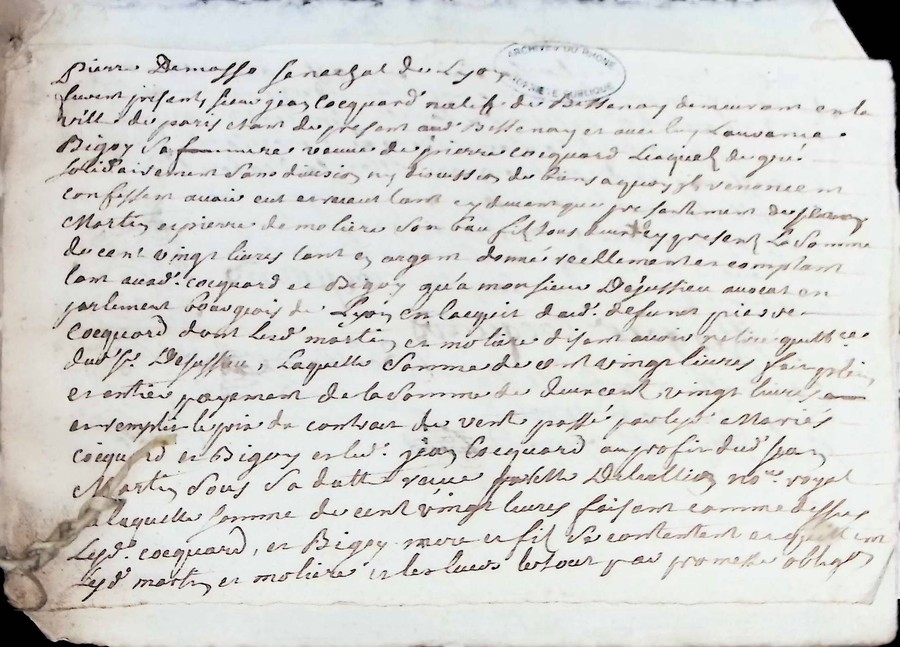 Pierre Demasso senechal de Lyon
ARCHIVES DU RHONE
PROPRIÉTÉ PUBLIQUE
furent presents sieur jean Cocquard natif de Bessenay demeurant en la
ville de paris etant de present aud. Bessenay et avec luy Louvance
Bigoy sa mere veuve de pierre Cocquard Lesquels de gré
solidairement sans division ny discussion de biens a quoy ils renoncent
confessent avoir eut et receut tant cy devant que presentement de
Martin et pierre de moliere son beau fil tous deux icy presents La somme
de cent vingt livres tant en argent donné reellement et comptant
tant auxd. cocquard et Bigoy qu'a monsieur Dejussieu avocat en
parlement bourgeois de Lyon en lacquit dud. defunt pierre
Cocquard dont Lesd. martin et moliere disent avoir retiré quittance
dud. Sr. Dejussieu, Laquelle somme de cent vingt livres fait plein
et entier payement de la somme de deux cent vingt livres
et remplir le prix du contrat de vent passé par lesd. Mariés
cocquard et Bigoy et led. jean Cocquard au profit dud. jean
Martin sous sa datte receu par Me no.re royal
de laquelle somme de cent vingt livres faisant comme dessus
Lesd. cocquard, et Bigoy mere et fil se contentent et quittent
Lesd. martin et moliere et les leurs le tout par promesse oblig.on